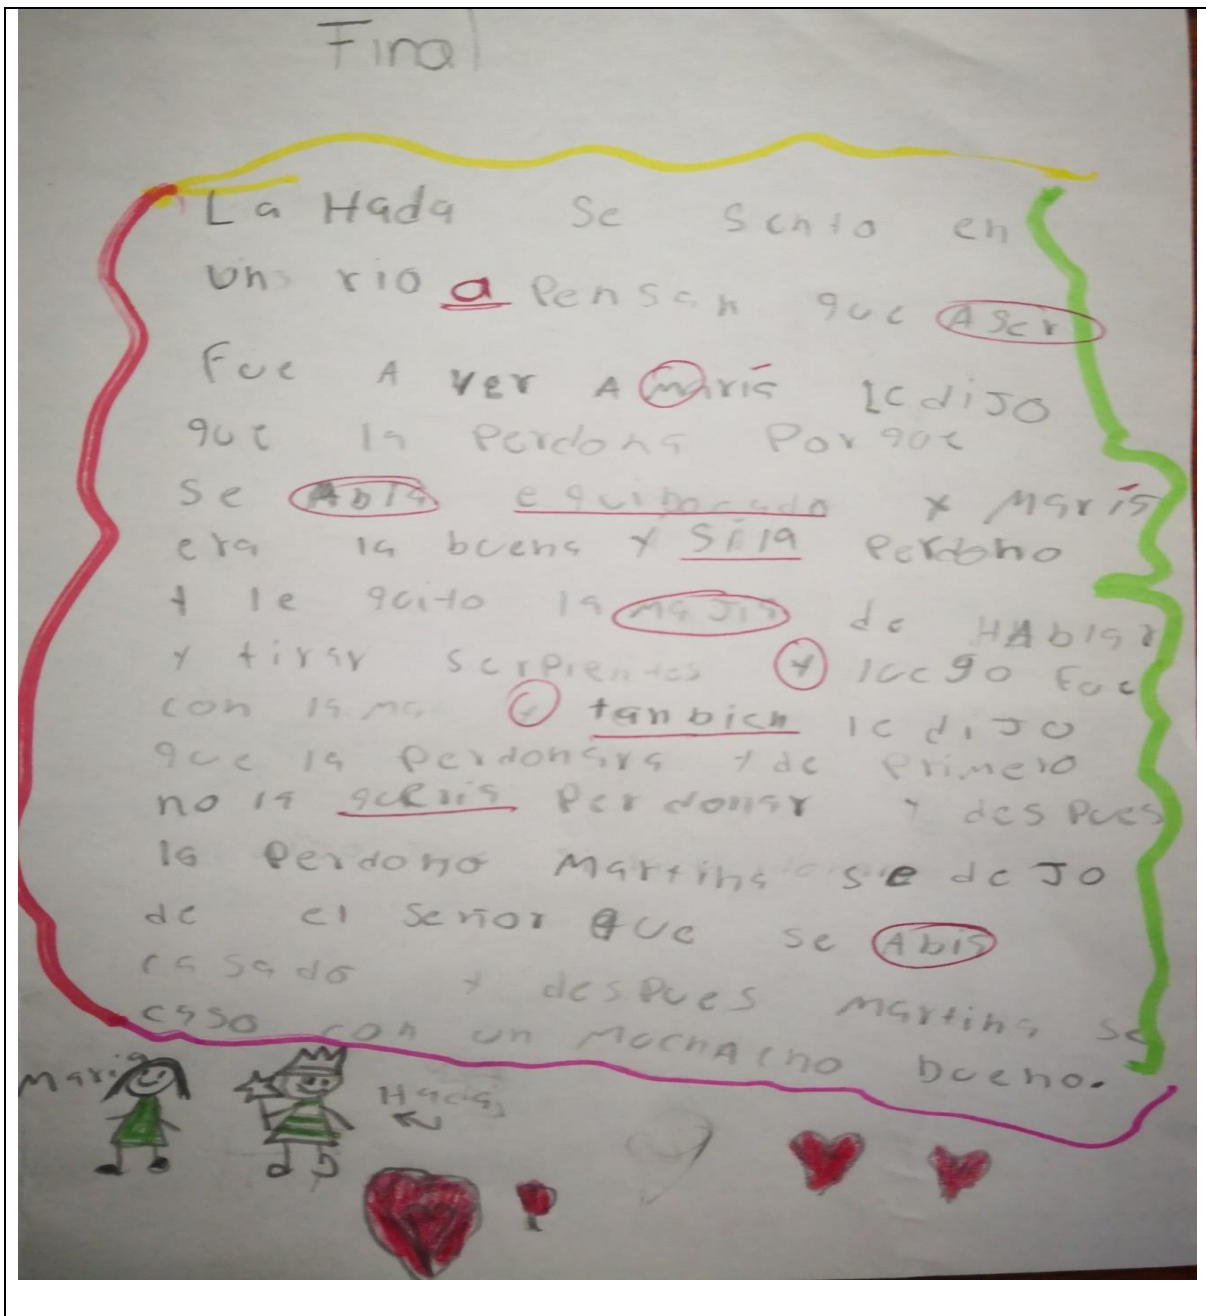 Final
La Hada se sento en
un rio a Pensar que Aser
Fue A ver A maría le diJo
que la Perdona Porque
se Abia equibocado y María
era la buena y Si la Perdono
y le qcito la maJia de HAblar
y tirar serpientes y luego Fue
con la ma y tanbien le diJo
que la Perdonara y de Primero
no la qeria Perdonar y des Pues
la Perdono Martina se deJo
de el señor que se Abia
casado y des Pues Martina se
caso con un MuchAcho bueno.
Maria
Hada